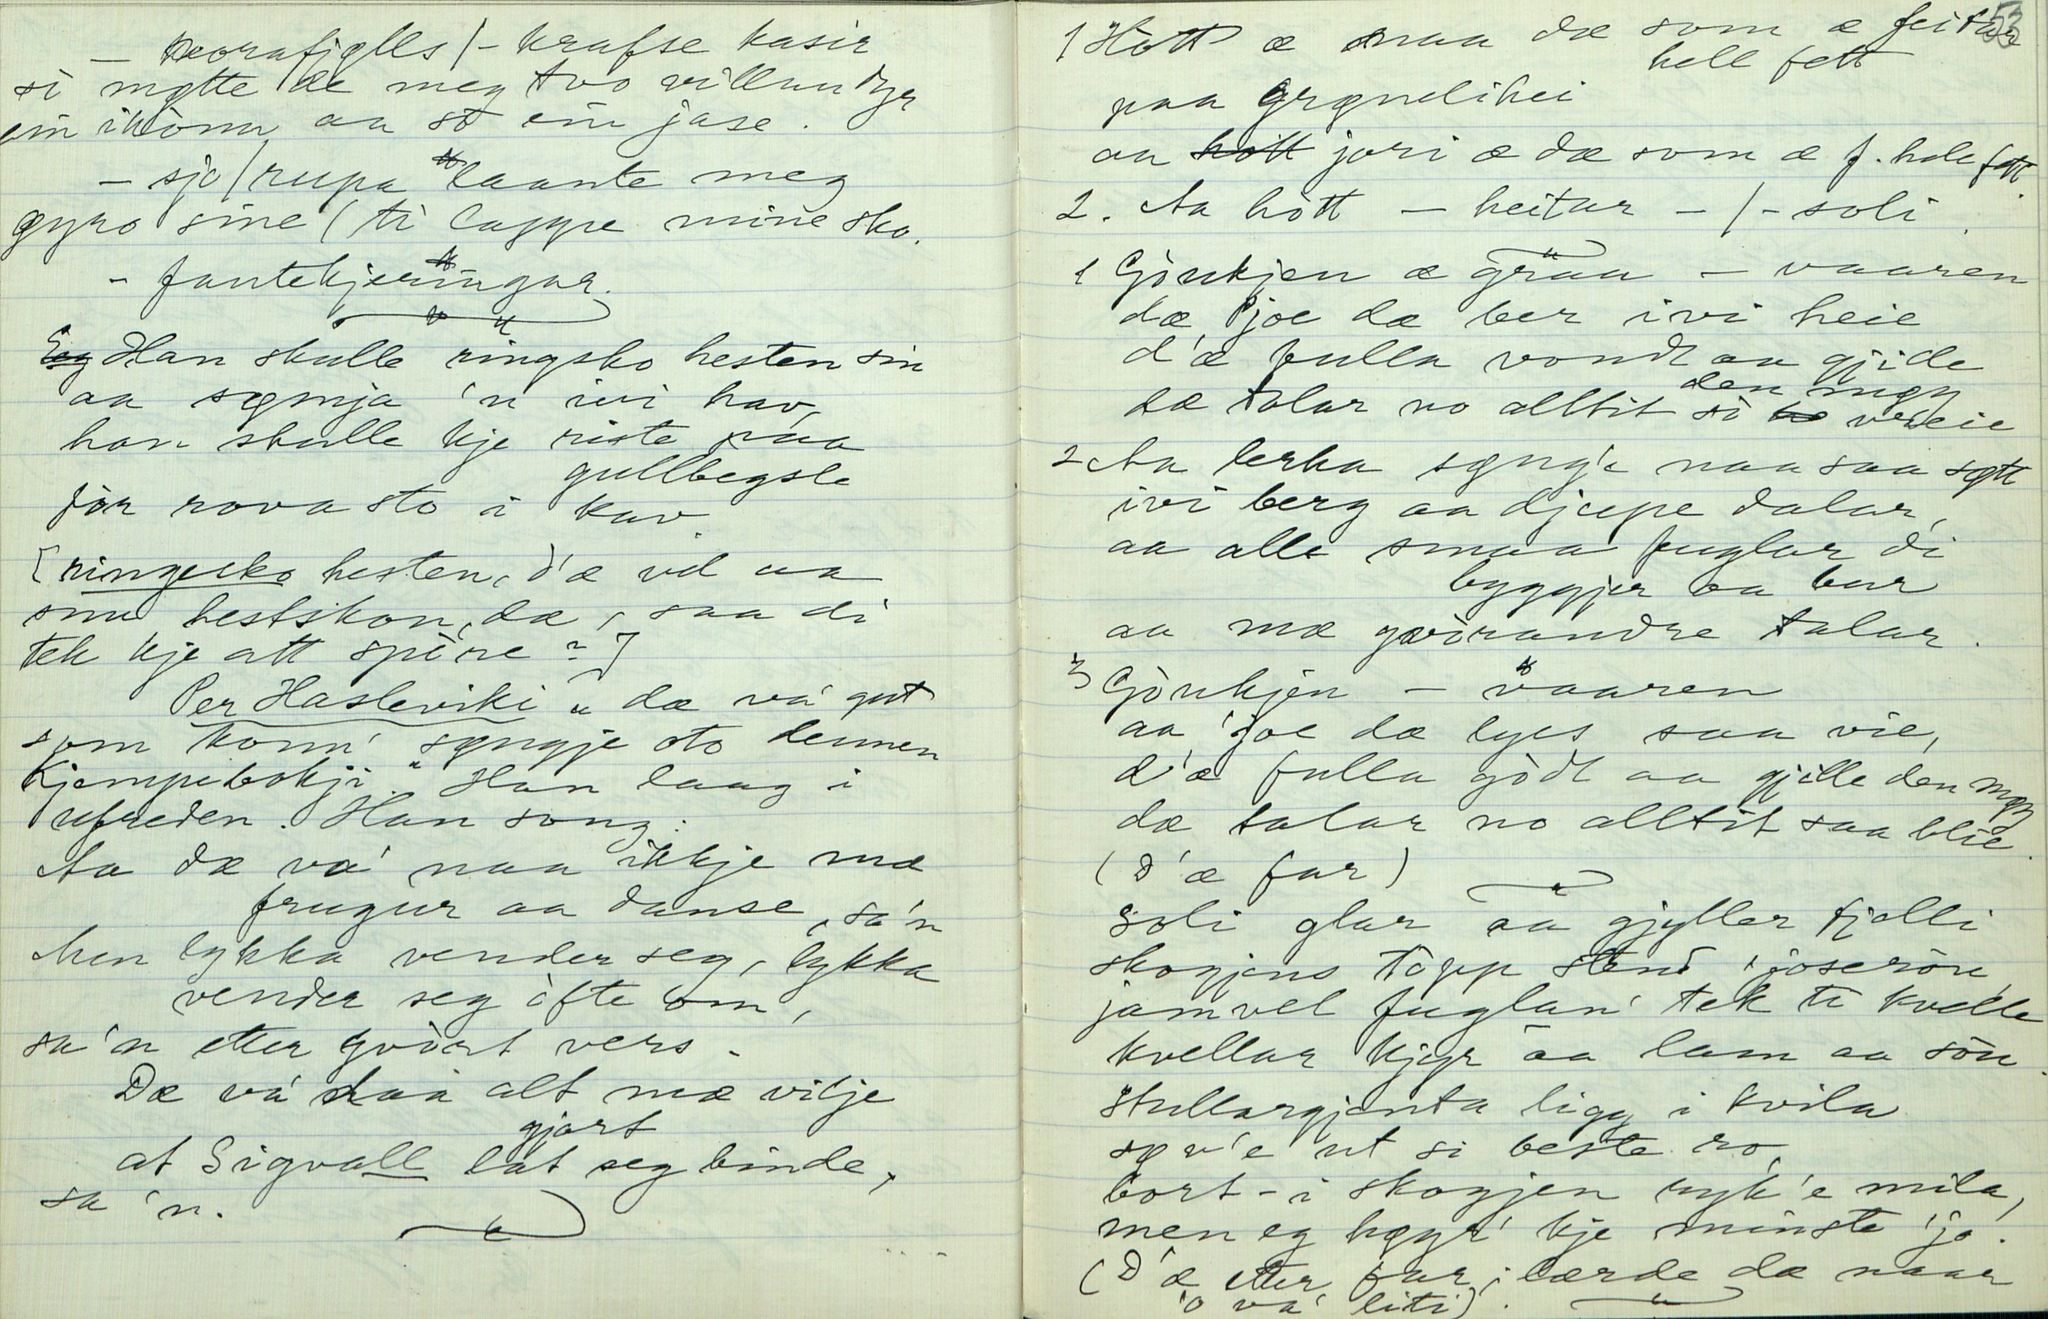 — krafse kasir
si møtte de meg two villandyr
ein ikònn aa so ein jase.
— sjo/rupa laante meg
gyro sine (ti lappe mine sko.
- fantekjeringar.
Han skulle ringsko hesten sin
aa symja 'n ivi hav,
han skulle kje riste paa
gullbegsle
før rova sto i kav
[ringsko hesten, d'æ vel aa
snu hestskon, dæ, saa di
tek kje att spòre -?]
Per Hasleviki „ dæ va' gut
som konn' syngje oto dennen
Kjempeboki." Han laag i
ufreden. Han song:
Aa dæ va' naa ikkje mæ
frugur aa danse, sa'n
Men lykka vender seg, lykka
vender seg òfte om,
sa'n etter hvòrt vers.
Dæ va' naa alt mæ vilje
gjort
at Sigvall lat seg binde,
sa'n.
53
1 Hòtt æ naa dæ som æ feitar
hell fett
paa grøneli hei
aa jori æ dæ som æ f. hele fett.
2. Aa hòtt — heitar — / - soli
1 Gòukjen æ graa — vaaren
dæ 'joe dæ ber ivi heie
d'æ fulla vondt aa gjide
den møy
dæ talar no alltit si vreie
2 Aa lerka syng'e naa saa søtt
ivi berg aa djupe dalar,
aa alle smaa fuglar di
byggjer aa bur
aa mæ gvòrandre talar.
3 Gòukjen — vaaren
aa 'joe dæ lyes saa vie,
d'æ fulla gòdt aa gjille den møy
dæ talar no alltit saa blie.
(d'æ far)
Soli glar aa gjyller fjelli
skogjens tòpp stend i joseròn,
jamvel fuglan' tek ti kvelle
kvellar kjyr aa lam aa sòn.
Stullargjenta ligg i kvila
søv'e ut si beste ro,
bort - i skogjen ryk'e mila,
men eg høyr' kje minste 'jo'.
(D'æ etter far; lærde dæ naar
'o va' liti).